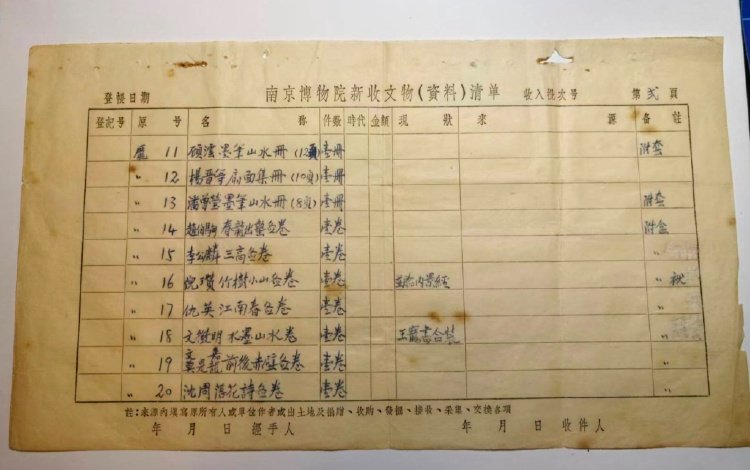 南京博物院新收文物(資料)清单
登帳日期 收入批次号 第 弍 頁
登記号 原号 名称 件数 時代 金額 現狀 來源 备註
龐 11 顾澐墨笔山水册(12頁) 壹册 附套
〃 12 楊晋筆扇面集册(10頁) 壹册
〃 13 潘曾瑩墨筆山水册(8頁) 壹册 附套
〃 14 趙伯驹春龍出蟄图卷 壹卷 附盒
〃 15 李公麟三高图卷 壹卷 〃
〃 16 倪瓒竹樹小山图卷 壹卷 内景經 〃
〃 17 仇英江南春图卷 壹卷 〃
〃 18 文徵明水墨山水卷 壹卷 王寵書合裝 〃
〃 19 文嘉 前後赤壁图卷 壹卷 〃
〃 20 沈周落花詩图卷 壹卷 〃
註:來源內填寫原所有人或單位作者或出土地及捐贈、收購、發掘、接收、采集、交換各項
年 月 日 經手人 年 月 日 收件人